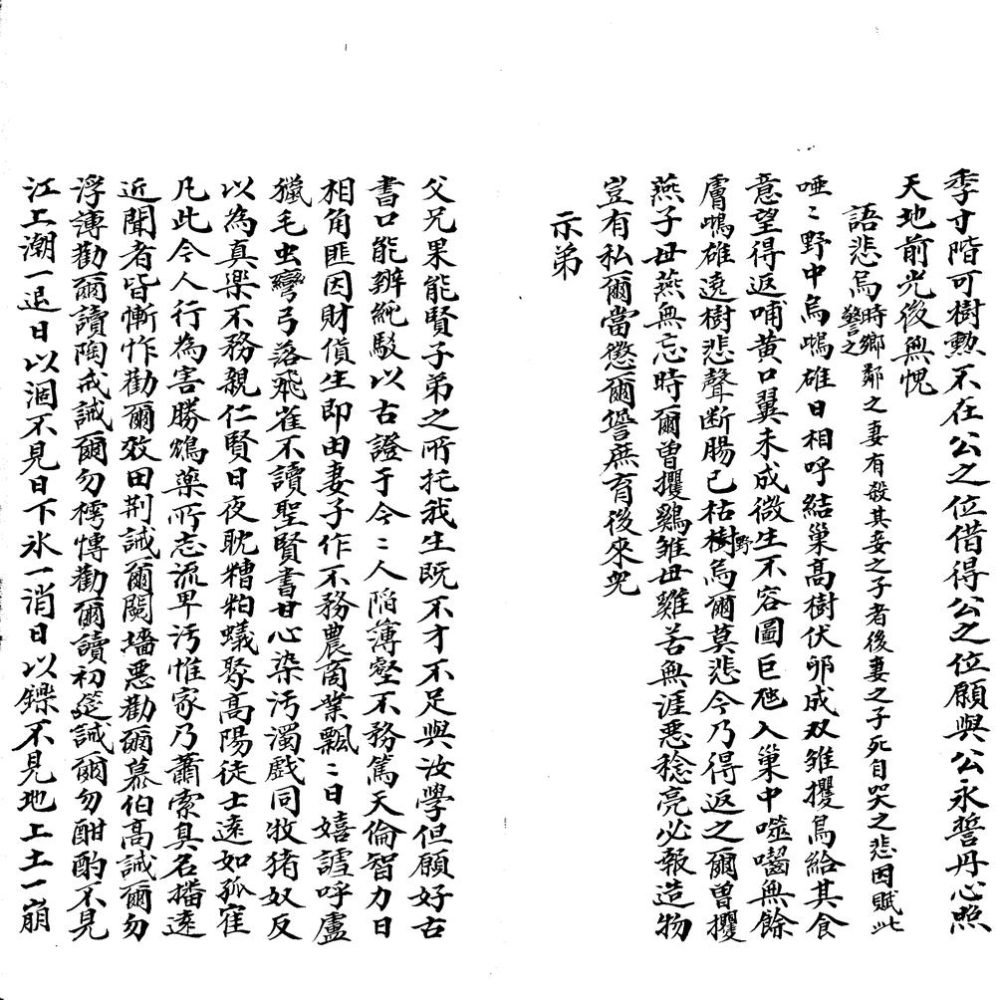 季寸階可樹勲不在公之位借得公之位願與公永誓丹心照
天地前光後無愧
語悲烏時鄉鄰之妻有殺其妾之子者後妻之子死自哭之悲因賦此
警之
唾〻野中烏鴟雄日相呼結巢高樹伏卵成双雏攫鳥給其食
意望得返哺黄口翼未成微生不容圖巨虺入巢中噬齧無餘
膚鴟雄遶樹悲聲断腸已枯樹野烏爾莫悲今乃得返之爾曽攫
燕子母燕無忘時爾曽攫鷄雏母雞苦無涯悪稔亮必報造物
豈有私爾當懲爾譽庶有後來兒
示弟
父兄果能賢子弟之所托我生既不才不足與汝學但願好古
書口能辨純駁以古證于今〻人陷薄壑不務篤天倫智力日
相角匪因財貨生即由妻子作不務農商業飄〻日嬉謔呼盧
獵毛虫彎弓落飛雀不讀聖賢書甘心染汚濁戲同牧猪奴反
以為真楽不務親仁賢日夜耽糟粕蟻聚高陽徒士遠如孤寉
凡此今人行為害勝鴆藥所志流卑汚惟家乃蕭索臭名播遠
近聞者皆慚怍勸爾效田荆誡爾鬩墻悪勸爾慕伯高誡爾勿
浮薄勸爾讀陶戒誡爾勿樗慱勸爾讀初筵誡爾勿酣酌不見
江上潮一退日以涸不見日下氷一消日以鑠不見地上土一崩